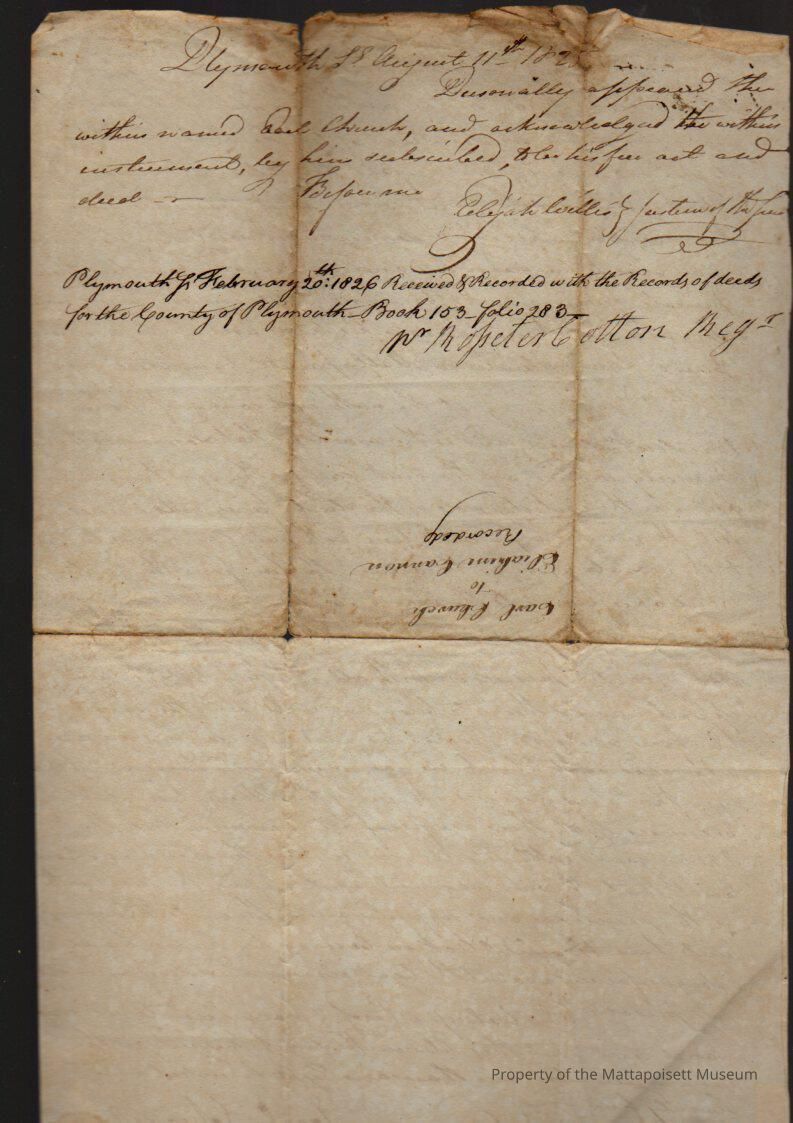 Plymouth Ss August 11th 1825
Personally appeared the
within named Earl Church, and acknowledged the within
instrument, by him subscribed, to be his free act and
deed — Before me
Elijah Willis Justice of the
Plymouth Ss. February 20th: 1826 Received & Recorded with the Records of deeds
for the County of Plymouth Book 153 folio 283
pr Rosseter Cotton Regr
Earl Church
to
Eliakim Cannon
Recorded
Property of the Mattapoisett Museum